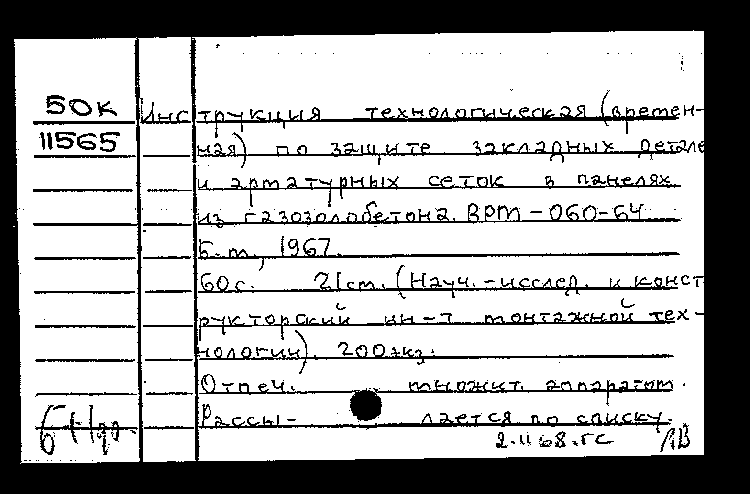 50К Инструкция технологическая (времен-
11565 ная) по защите закладных детале
и арматурных сеток в панелях
из газозолобетона. ВРТ-060-64
Б.т., 1967.
60с. 21ст. (Науч.-исслед. и конст
рукторский ин-т монтажной тех-
нологии). 200экз.
Отпеч. множит. аппаратом.
Рассылается по списку.
2.II 68.ГС ЛВ